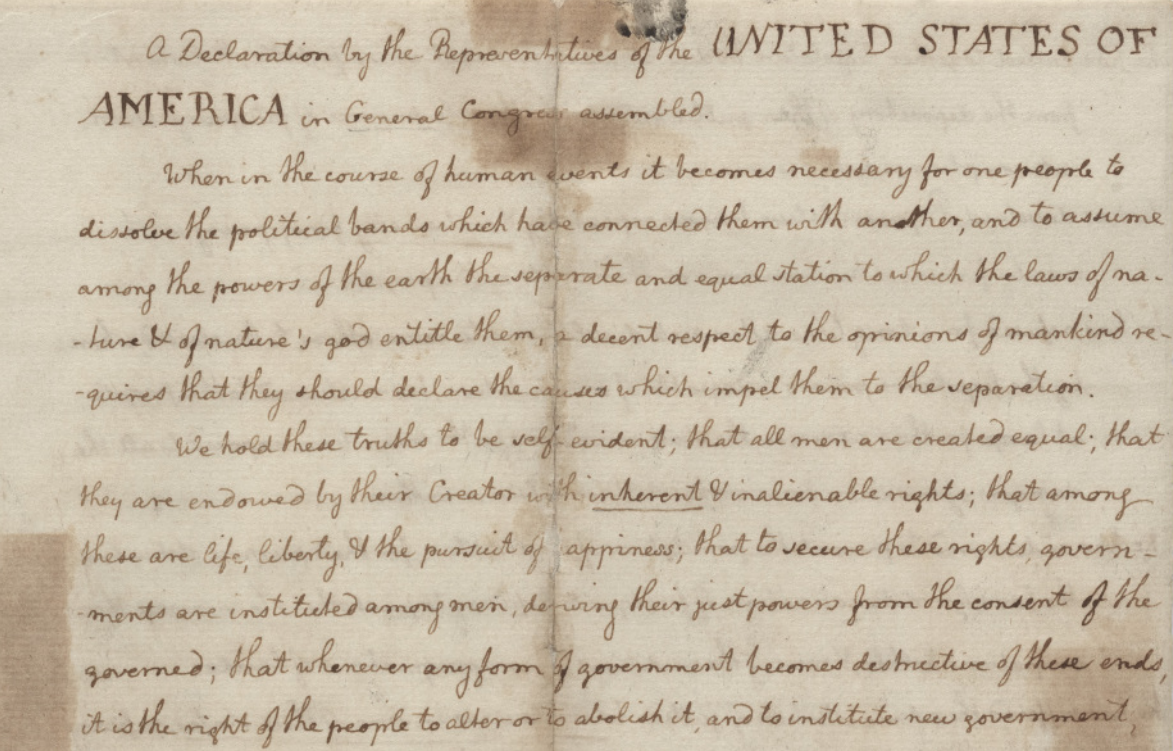 A Declaration by the Representatives of the UNITED STATES OF
AMERICA in General Congress assembled.
When in the course of human events it becomes necessary for one people to
dissolve the political bands which have connected them with another, and to assume
among the powers of the earth the separate and equal station to which the laws of na-
-ture & of nature's god entitle them, a decent respect to the opinions of mankind re-
-quires that they should declare the causes which impel them to the separation.
We hold these truths to be self-evident; that all men are created equal; that
they are endowed by their Creator with inherent & inalienable rights; that among
these are life, liberty, & the pursuit of happiness; that to secure these rights, govern-
-ments are instituted among men, deriving their just powers from the consent of the
governed; that whenever any form of government becomes destructive of these ends,
it is the right of the people to alter or to abolish it, and to institute new government,